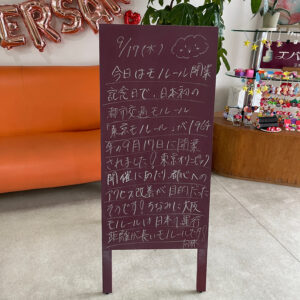 ERSA
9/17(水)
今日はモノレール開業
記念日で、日本初の
都市交通モノレール
「東京モノレール」が1964
年の9月17日に開業
されました！東京オリンピック
開催にあたり、都心への
アクセス改善が目的だった
そうです！ちなみに大阪
モノレールは日本1運行
距離が長いモノレールです！